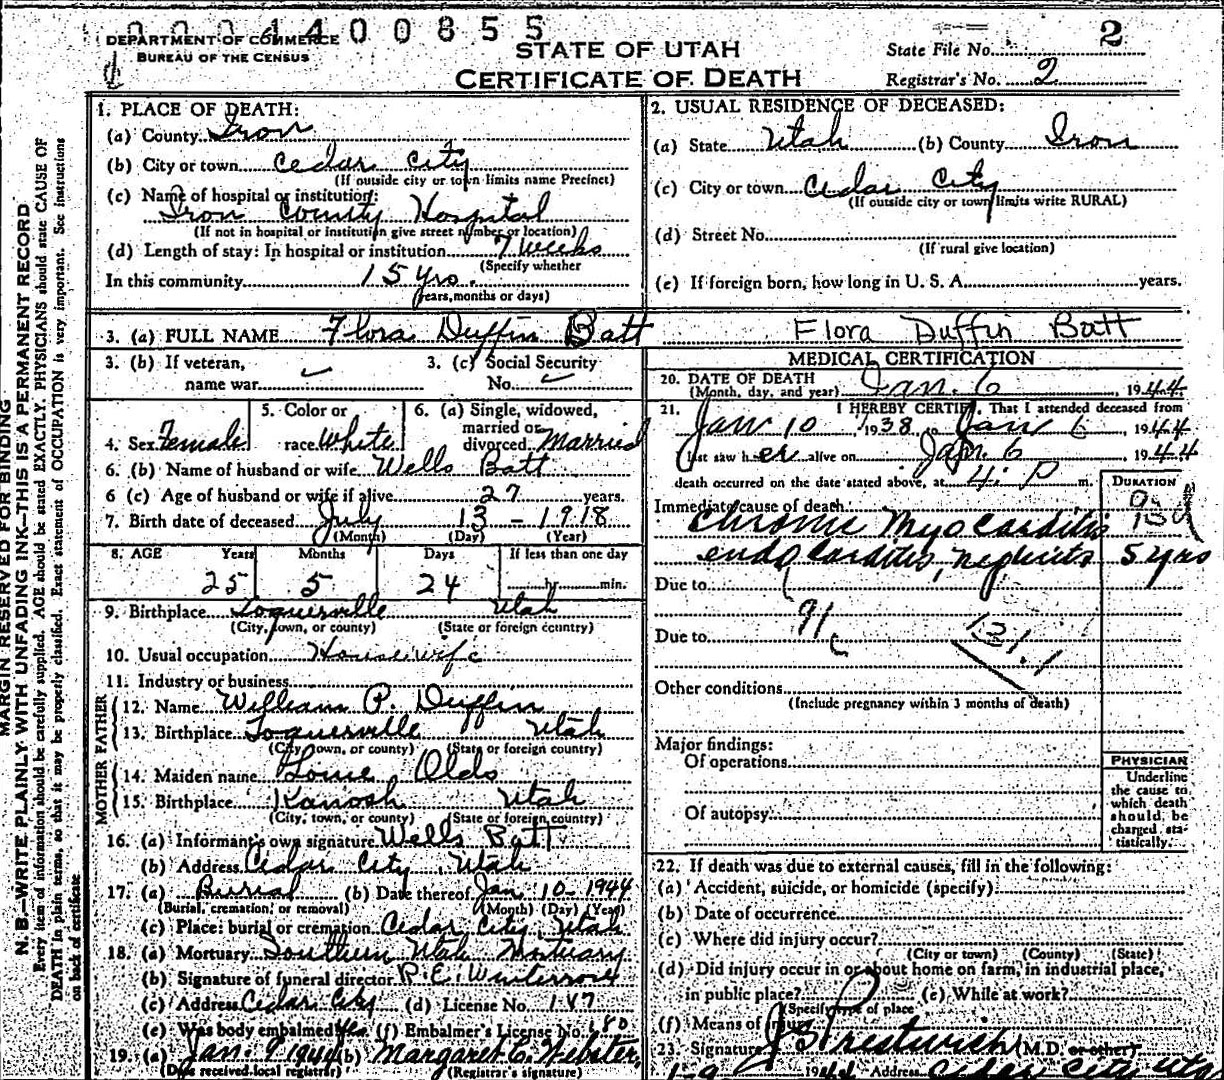 0001400855
DEPARTMENT OF COMMERCE
BUREAU OF THE CENSUS
STATE OF UTAH
CERTIFICATE OF DEATH
State File No. 2
Registrar's No. 2
MARGIN RESERVED FOR BINDING
N. B.—WRITE PLAINLY WITH UNFADING INK—THIS IS A PERMANENT RECORD
Every item of information should be carefully supplied. AGE should be stated EXACTLY. PHYSICIANS should state CAUSE OF
DEATH in plain terms, so that it may be properly classified. Exact statement of OCCUPATION is very important. See instructions
on back of certificate
1. PLACE OF DEATH:
(a) County Iron
(b) City or town Cedar City
(If outside city or town limits name Precinct)
(c) Name of hospital or institution:
Iron County Hospital
(If not in hospital or institution give street number or location)
(d) Length of stay: In hospital or institution 7 weeks
(Specify whether
In this community 15 yrs.
years, months or days)
2. USUAL RESIDENCE OF DECEASED:
(a) State Utah (b) County Iron
(c) City or town Cedar City
(If outside city or town limits write RURAL)
(d) Street No.
(If rural give location)
(e) If foreign born, how long in U. S. A. years.
3. (a) FULL NAME Flora Duffin Batt Flora Duffin Batt
3. (b) If veteran,
name war
3. (c) Social Security
No.
4. Sex Female
5. Color or
race White
6. (a) Single, widowed,
married or
divorced Married
6. (b) Name of husband or wife Wells Batt
6 (c) Age of husband or wife if alive 27 years.
7. Birth date of deceased July 13 - 1918
(Month) (Day) (Year)
8. AGE Years Months Days If less than one day
25 5 24 hr. min.
9. Birthplace Toquerville Utah
(City, town, or county) (State or foreign country)
10. Usual occupation Housewife
11. Industry or business
FATHER
12. Name William P. Duffin
13. Birthplace Toquerville Utah
(City, town, or county) (State or foreign country)
MOTHER
14. Maiden name Olds
15. Birthplace Kanosh Utah
(City, town, or county) (State or foreign country)
16. (a) Informant's own signature Wells Batt
(b) Address Cedar City, Utah
17. (a) Burial (b) Date thereof Jan. 10-1944
(Burial, cremation, or removal) (Month) (Day) (Year)
(c) Place: burial or cremation Cedar City, Utah
18. (a) Mortuary Southern Utah Mortuary
(b) Signature of funeral director P. E. Winterrose
(c) Address Cedar City (d) License No. 187
(e) Was body embalmed Yes (f) Embalmer's License No. 180
19. (a) Jan. 9 1944 (b) Margaret C. Webster,
(Date received local registrar) (Registrar's signature)
MEDICAL CERTIFICATION
20. DATE OF DEATH
(Month, day, and year) Jan. 6 1944
21. I HEREBY CERTIFY, That I attended deceased from
Jan 10 1938 to Jan 6 1944
last saw her alive on Jan. 6 1944
death occurred on the date stated above, at 4: P m.
DURATION
Immediate cause of death:
Chronic Myocarditis
endocarditis, nephritis 5 yrs
Due to
91c
Due to 131.1
Other conditions
(Include pregnancy within 3 months of death)
Major findings:
Of operations
Of autopsy
PHYSICIAN
Underline
the cause to
which death
should be
charged sta-
tistically.
22. If death was due to external causes, fill in the following:
(a) Accident, suicide, or homicide (specify)
(b) Date of occurrence
(c) Where did injury occur?
(City or town) (County) (State)
(d) Did injury occur in or about home on farm, in industrial place,
in public place? (e) While at work?
(Specify type of place
(f) Means of injury
23. Signature J S Prestwich (M.D. or other)
1-9 1944 Address Cedar City Utah